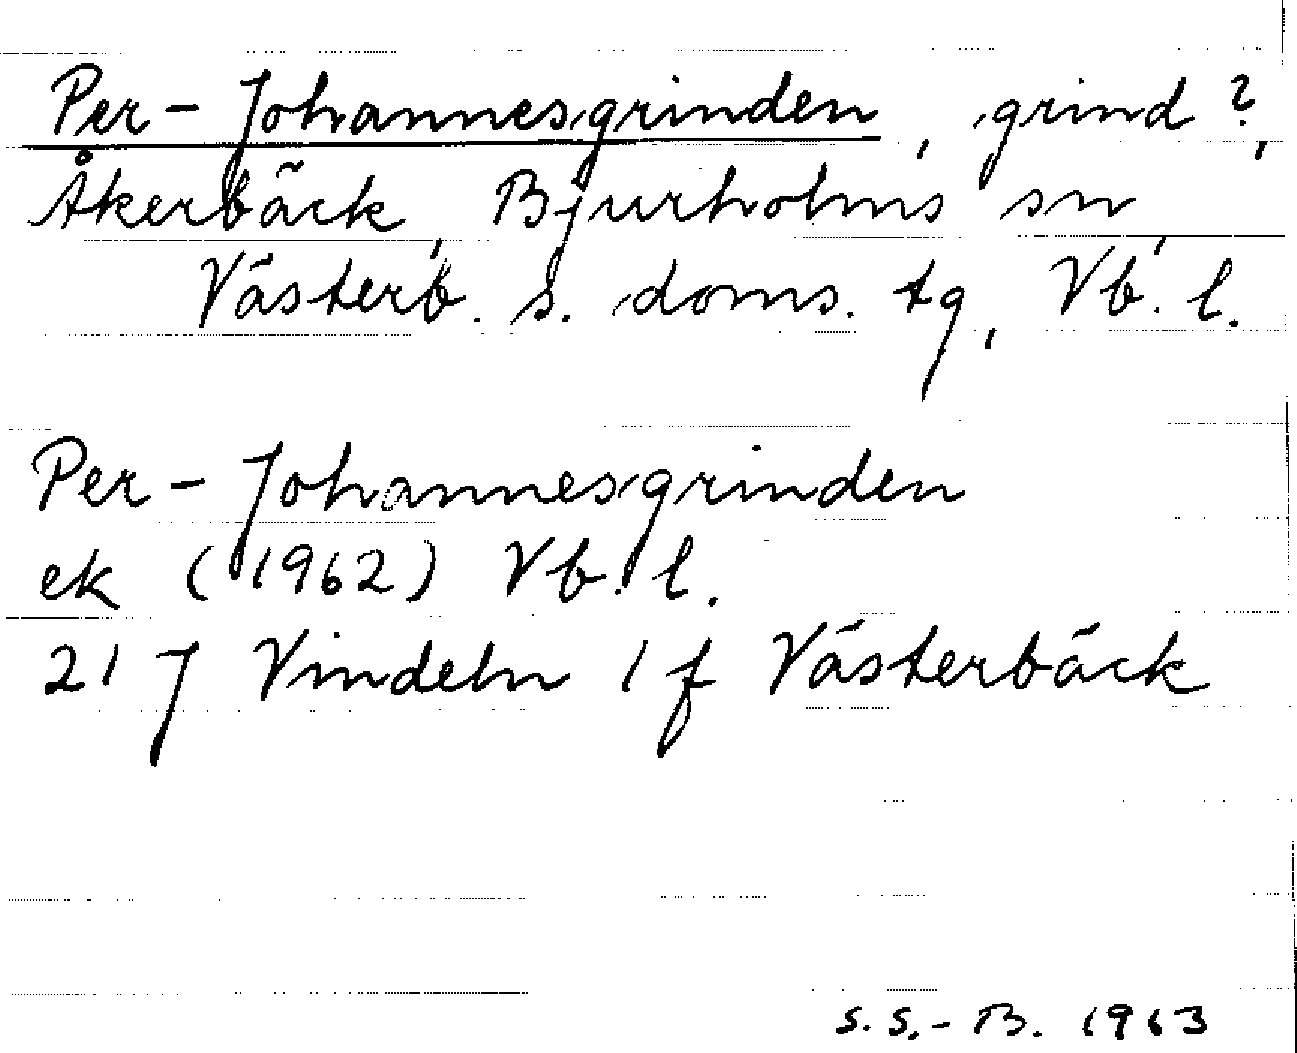 Per-Johannesgrinden, grind?,
Åkerbäck, Bjurholms sn,
Västerb. s. doms. tg, Vb. l.
Per-Johannesgrinden
ek (1962) Vb. l.
21 J Vindeln 1 f Västerbäck
S.S.-B. 1963